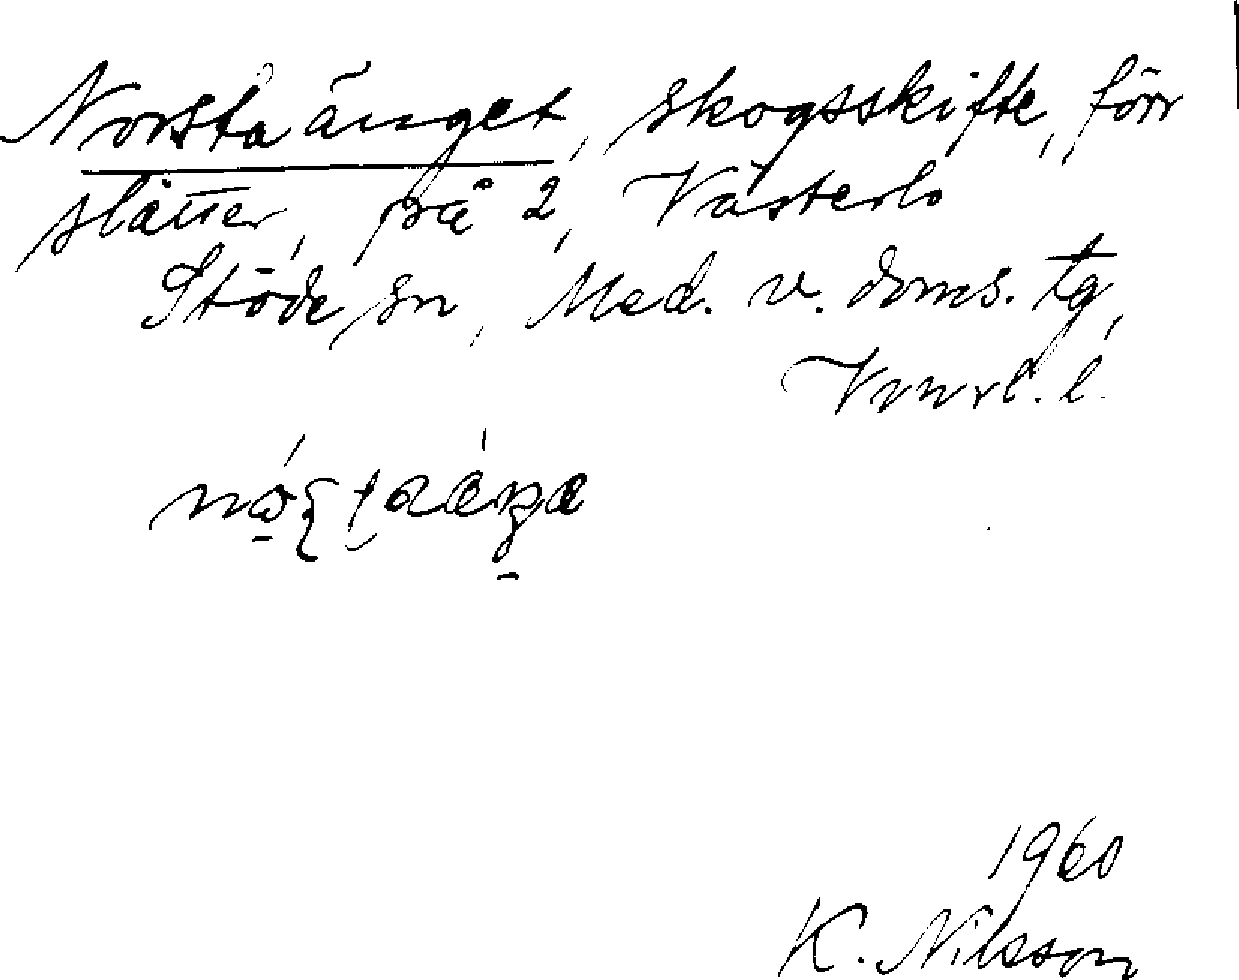 Norsta änget, skogsskifte, förr
slåtter, på 2, Västerlo
Stöde sn, Med. v. doms. tg,
Vnrl. l.
1960
K. Nilsson